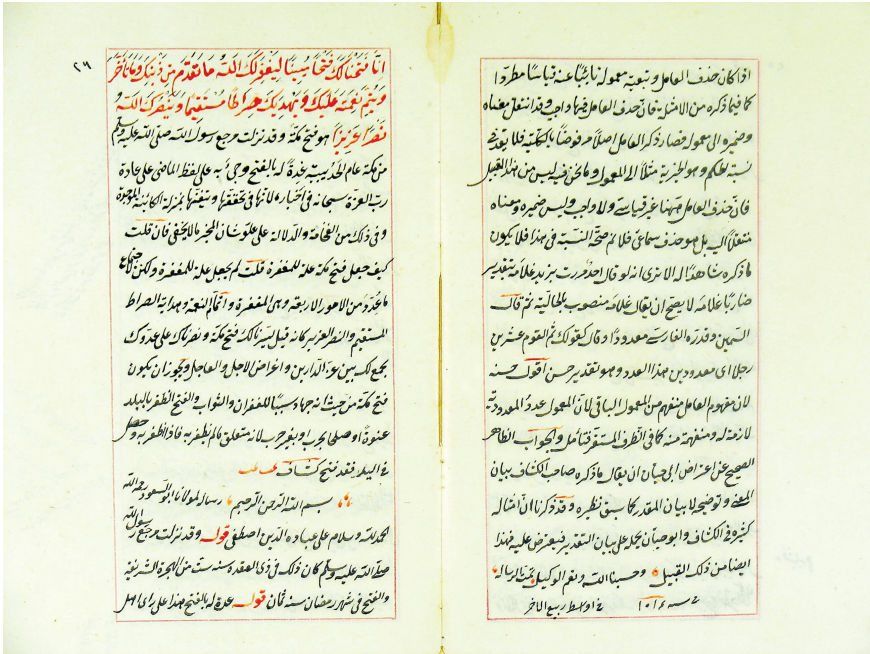 اذا كان حذف العامل وتبعية معموله نائبا عنه قياسا مطردا
كما فيما ذكره من الامثلة فان حذف العامل فيها واجب وقد انتقل معناه
وضميره الى معموله فصار ذكر العامل اصلا مرفوضا بالكلية فلا بعد في
نسبة الحكم وهو الخبرية مثلا الى المعمول وما نحن فيه ليس من هذا القبيل
فان حذف العامل ههنا غير قياسى ولا واجب وليس ضميره ومعناه
منتقلا اليه بل هو حذف سماعى فلا تم صحة النسبة فى هذا فلا يكون
ما ذكره شاهدا له الا ترى انه لو قال احد مررت بزيد غلامه بتقدير
ضاربا غلامه لا يصح ان يقال غلامه منصوب بالحالية ثم قال
السمين وقدره الفارسى معدودا وقال كقولك هم القوم عشرين
رجلا اى معدودين هذا العدد وهو تقدير حسن اقول حسنه
لان مفهوم العامل منفهم من المعمول الباقى لان المعمول عدد المعدودية
لازمة له ومنفهمة منه كما فى الظرف المستقر فتأمل والجواب الظاهر
الصحيح عن اعتراض ابى حيان ان يقال ما ذكره صاحب الكشاف بيان
المعنى وتوضيحه لا بيان المقدر كما سبق نظيره وقد ذكرنا ان امثاله
كثيرة فى الكشاف وابو حيان يحمله على بيان التقدير فيعترض عليه فهذا
ايضا من ذلك القبيل وحسبنا الله ونعم الوكيل تمت الرسالة
فى سنه ١٠١٤ فى اواسط ربيع الآخر
٢٦
انا فتحنا لك فتحا مبينا ليغفر لك الله ما تقدم من ذنبك وما تأخر
ويتم نعمته عليك ويهديك صراطا مستقيما وينصرك الله
نصرا عزيزا هو فتح مكة وقد نزلت مرجع رسول الله صلى الله عليه وسلم
من مكة عام الحديبية عدة له بالفتح وجئ به على لفظ الماضى على عادة
رب العزة سبحانه فى اخباره لانها فى تحققها وتيقنها بمنزلة الكائنة الموجودة
وفى ذلك من الفخامة والدلالة على علو شان المخبر ما لا يخفى فان قلت
كيف جعل فتح مكة علة للمغفرة قلت لم يجعل علة للمغفرة ولكن لاجتماع
ما عدد من الامور الاربعة وهى المغفرة واتمام النعمة وهداية الصراط
المستقيم والنصر العزيز كانه قيل يسرنا لك فتح مكة ونصرناك على عدوك
لنجمع لك بين عز الدارين واغراض الآجل والعاجل ويجوز ان يكون
فتح مكة من حيث انه جهاد سببا للغفران والثواب والفتح الظفر بالبلد
عنوة او صلحا بحرب او بغير حرب لانه منغلق ما لم يظفر به فاذا ظفر به وحصل
فى اليد فقد فتح كشاف
بسم الله الرحمن الرحيم رساله لمولانا ابو السعود رحمه الله
الحمد لله وسلام على عباده الذين اصطفى قوله وقد نزلت مرجع رسول الله
صلى الله عليه وسلم كان ذلك فى ذى القعدة سنة ست من الهجرة الشريفة
والفتح فى شهر رمضان سنة ثمان قوله عدة له بالفتح هذا على راى اهل